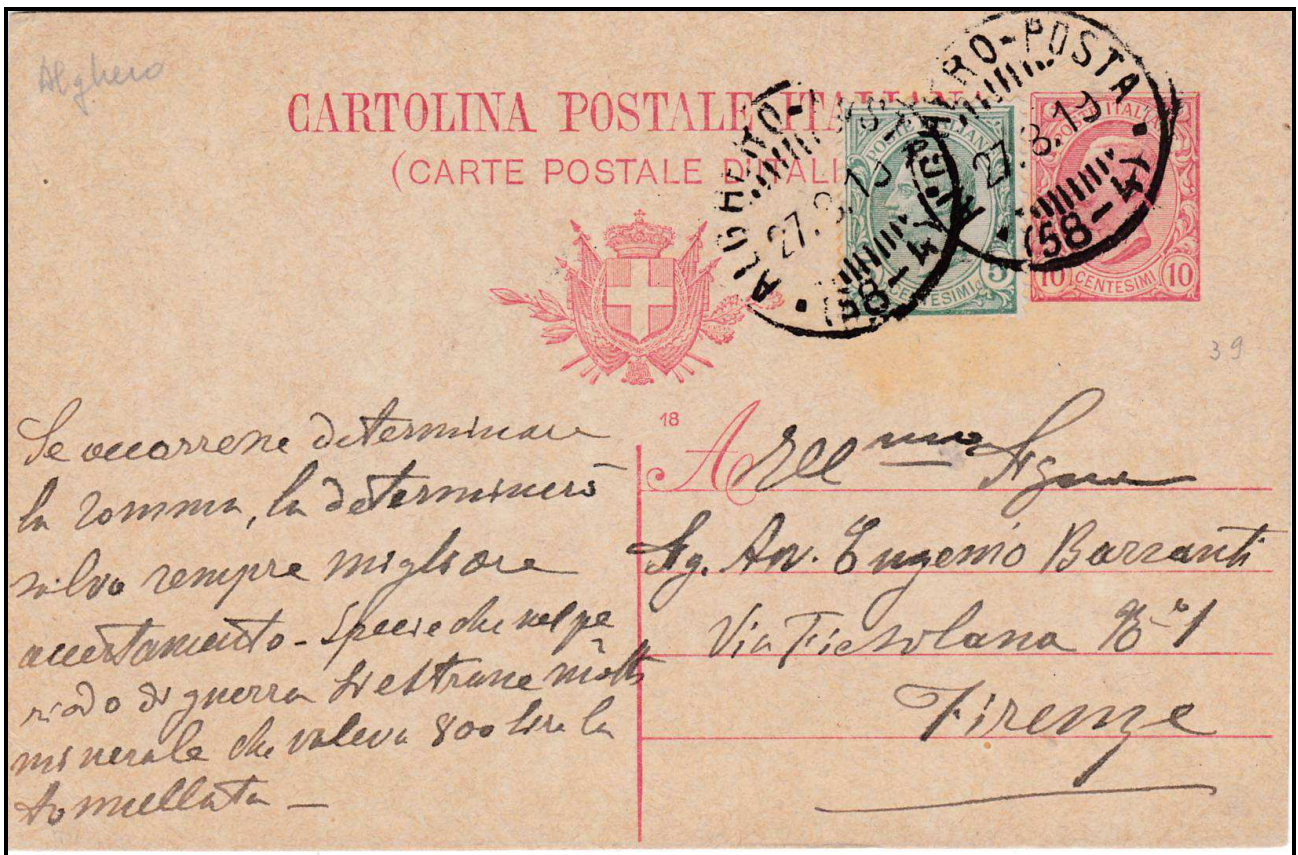 Alghero
CARTOLINA POSTALE ITALIANA
(CARTE POSTALE D'ITALI
ALGHERO-
27.8.19
(58-4)
ALGHERO-POSTA
27.8.19
(58-4)
POSTE ITALIANE
5
CENTESIMI
10 CENTESIMI 10
39
18
Se occorrene determinare
la somma, la determinerò
salvo sempre migliore
accertamento - Specie che nel pe
riodo di guerra si estrasse molto
minerale che valeva 800 lire la
tonnellata -
A Ill mo Signor
Sig. Av. Eugenio Barsanti
Via Fiesolana No 1
Firenze